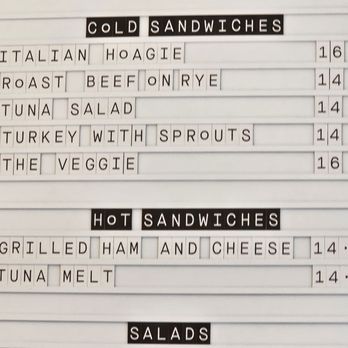 COLD SANDWICHES
ITALIAN HOAGIE 16
ROAST BEEF ON RYE 14
TUNA SALAD 14
TURKEY WITH SPROUTS 14
THE VEGGIE 16
HOT SANDWICHES
GRILLED HAM AND CHEESE 14.
TUNA MELT 14.
SALADS